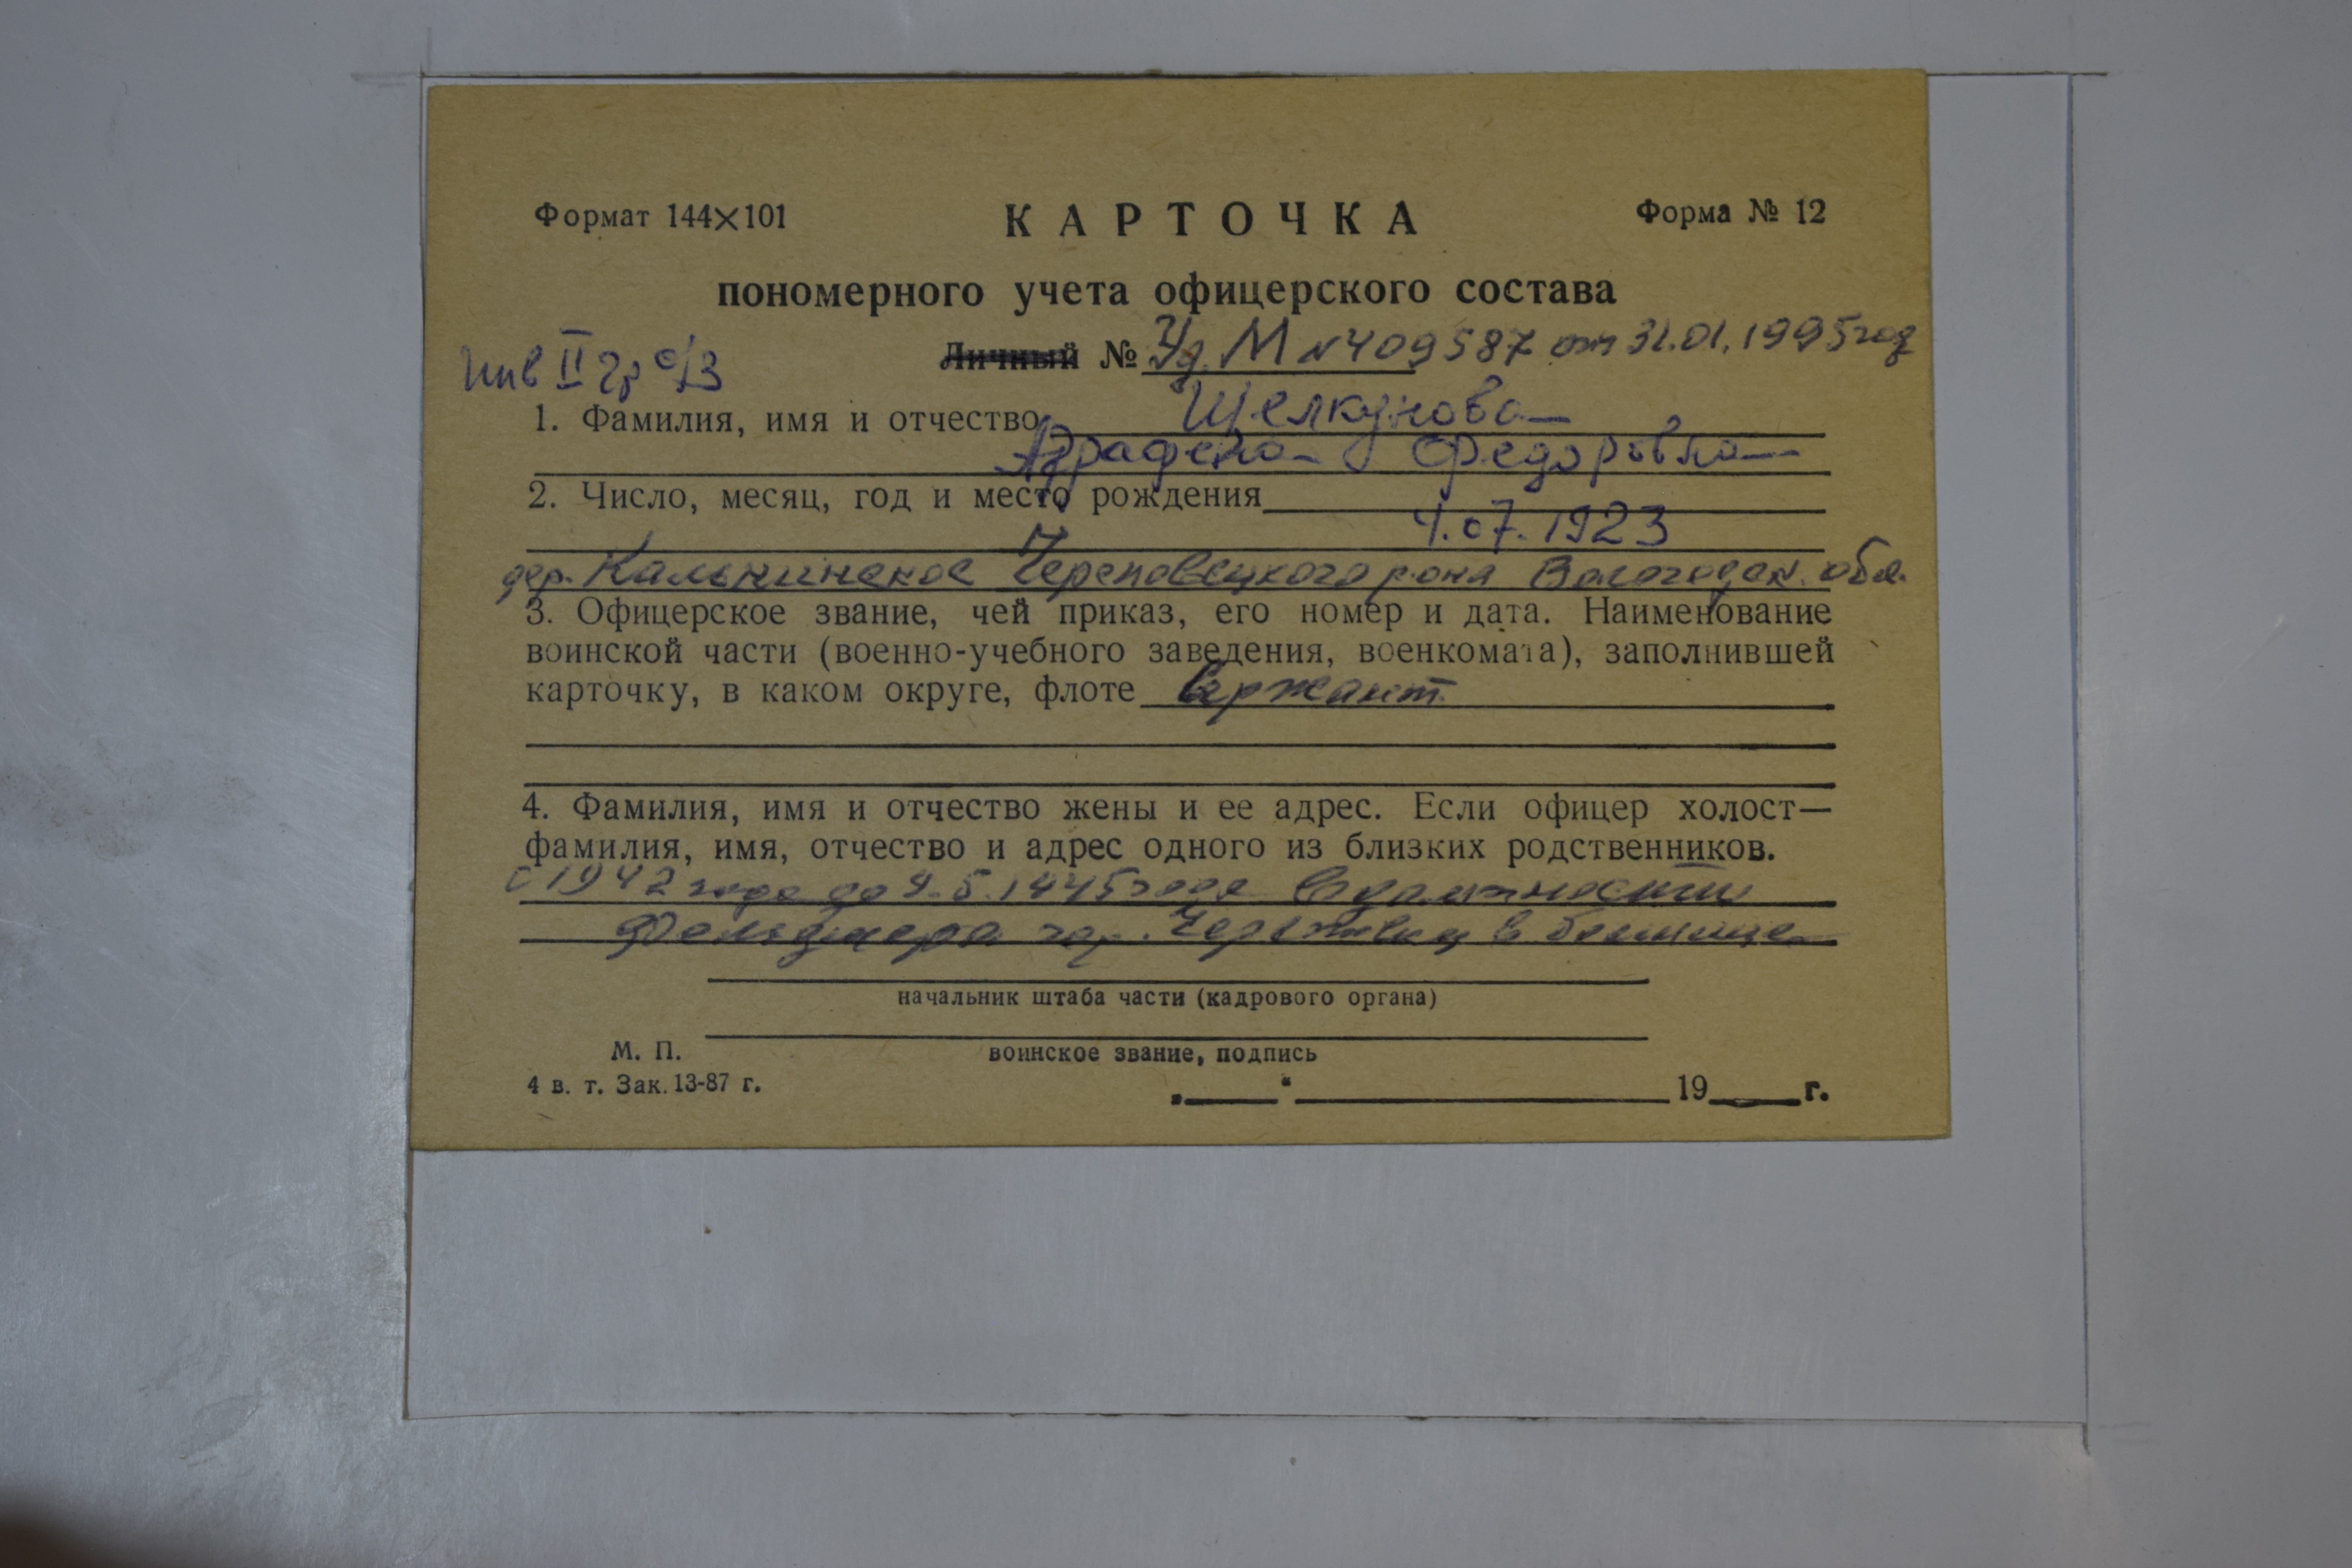 Формат 144×101 КАРТОЧКА Форма № 12
пономерного учета офицерского состава
Личный № Уд. М №409587 от 31.01.1995год
инв II гр о/з
1. Фамилия, имя и отчество Щелкунова
Аграфена Федоровна
2. Число, месяц, год и место рождения
4.07.1923
дер. Череповецкого р-она Вологодск. обл.
3. Офицерское звание, чей приказ, его номер и дата. Наименование
воинской части (военно-учебного заведения, военкомата), заполнившей
карточку, в каком округе, флоте Сержант
4. Фамилия, имя и отчество жены и ее адрес. Если офицер холост—
фамилия, имя, отчество и адрес одного из близких родственников.
с 1942 года до 9.5.1945 года в должности
фельдшера в больнице
начальник штаба части (кадрового органа)
М. П. воинское звание, подпись
4 в. т. Зак. 13-87 г.
„ “ 19 г.